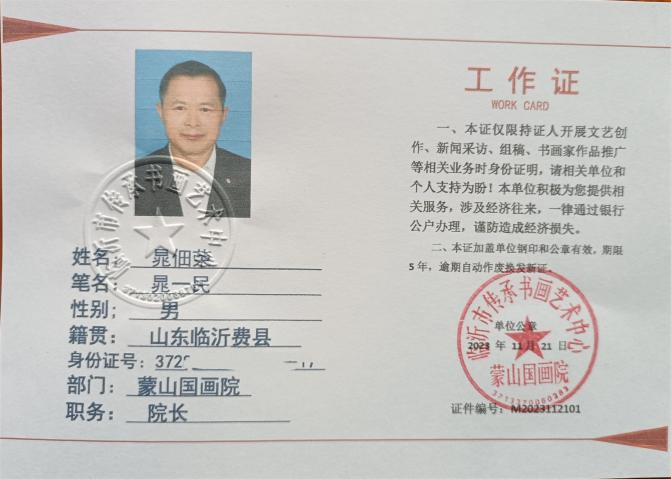 姓名: 晁佃荣
笔名: 晁一民
性别; 男
籍贯: 山东临沂费县
身份证号: 372
部门: 蒙山国画院
职务: 院长
工作证
WORK CARD
一、本证仅限持证人开展文艺创
作、新闻采访、组稿、书画家作品推广
等相关业务时身份证明，请相关单位和
个人支持为盼！本单位积极为您提供相
关服务，涉及经济往来，一律通过银行
公户办理，谨防造成经济损失。
二、本证加盖单位钢印和公章有效，期限
5年，逾期自动作废换发新证。
单位公章
2023 年 11 月 21 日
证件编号: M2023112101
临沂市传承书画艺术中心
蒙山国画院
临沂市传承书画艺术中